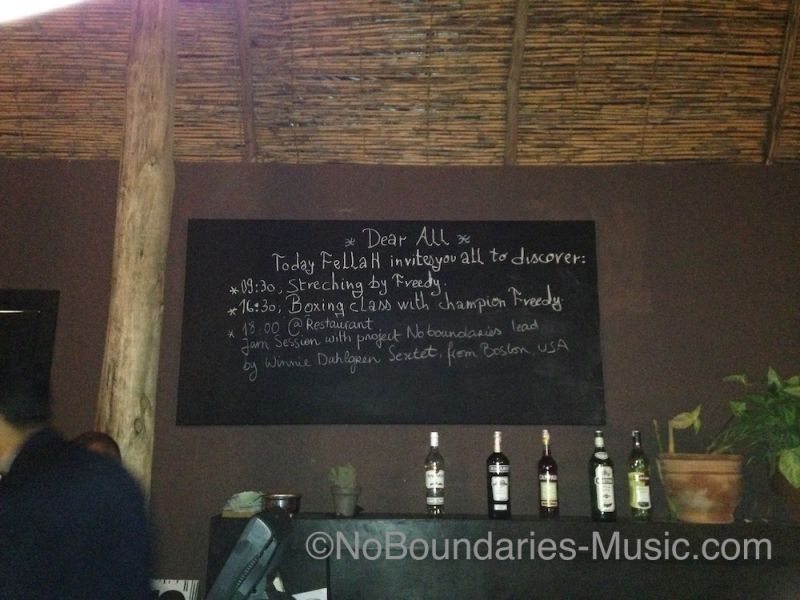 * Dear All *
Today FellaH invites you all to discover:
* 09:30, Streching by Freedy.
* 16:30, Boxing class with champion Freedy
* 18.00 @ Restaurant
Jam Session with project No boundaries lead
by Winnie Dahlgren Sextet, from Boston, USA
CAMPARI
©NoBoundaries-Music.com